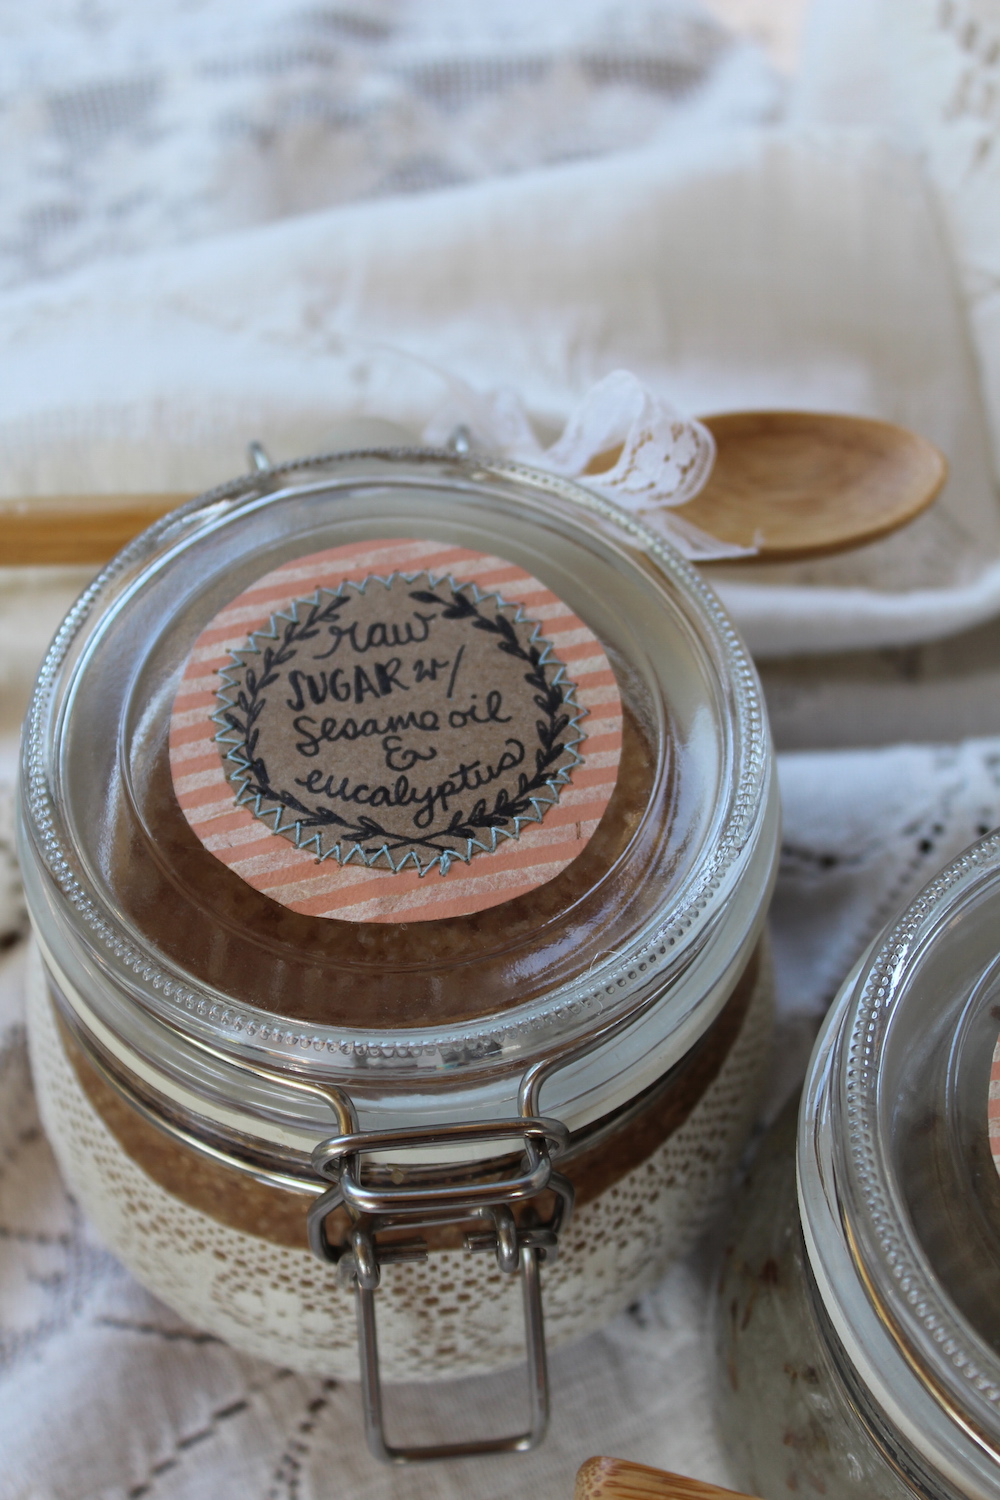 raw
SUGAR w/
sesame oil
&
eucalyptus